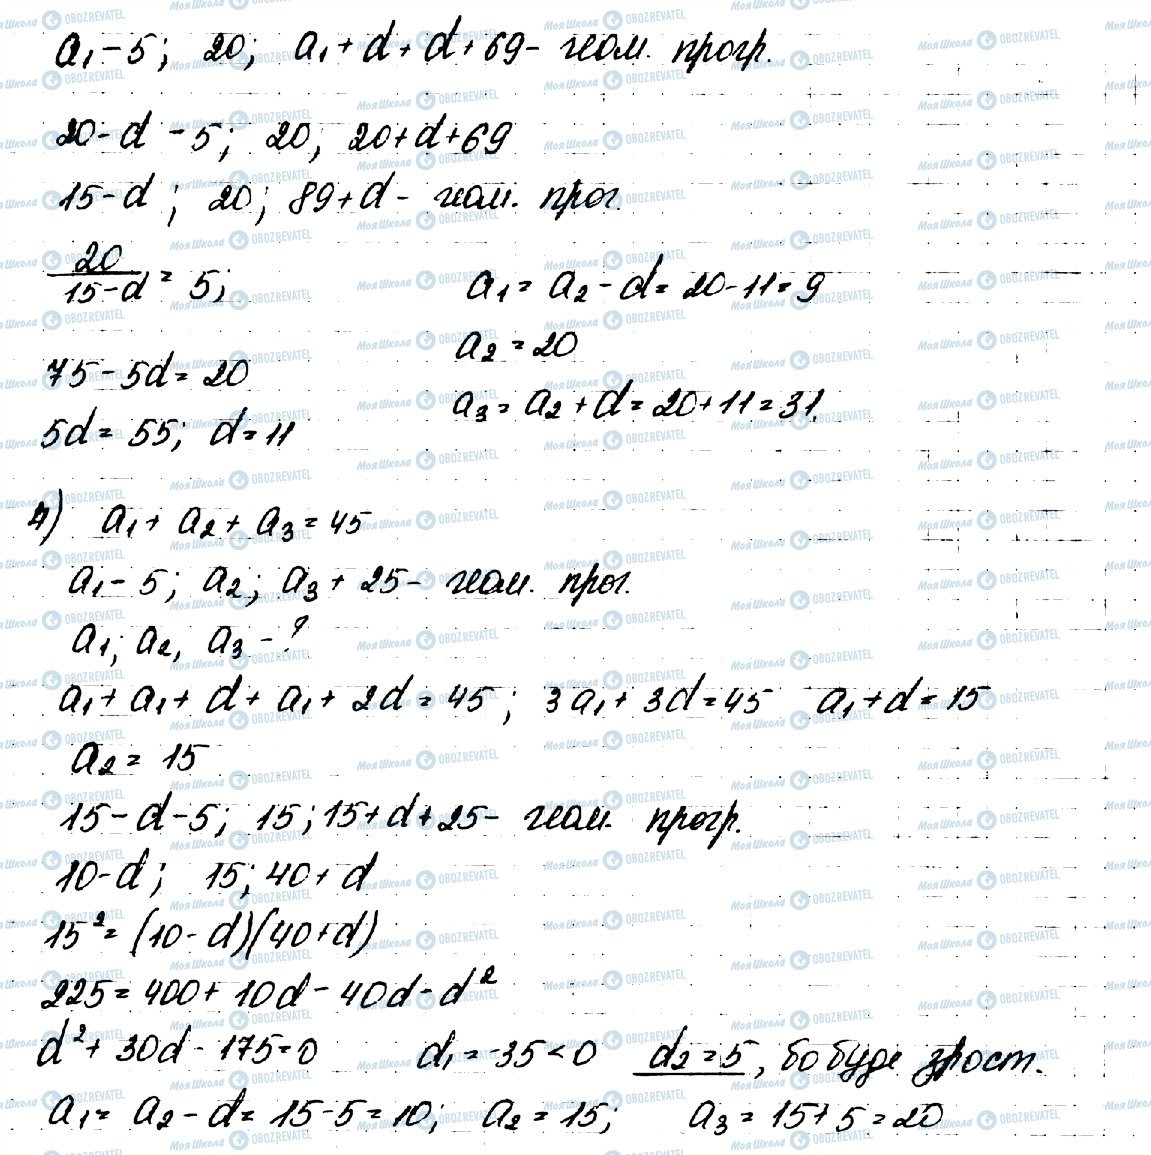 a₁ - 5; 20; a₁ + d + d + 69 - геом. прогр.
20 - d - 5; 20; 20 + d + 69
15 - d; 20; 89 + d - геом. прог.
20/(15 - d) = 5;
75 - 5d = 20
5d = 55; d = 11
a₁ = a₂ - d = 20 - 11 = 9
a₂ = 20
a₃ = a₂ + d = 20 + 11 = 31.
4) a₁ + a₂ + a₃ = 45
a₁ - 5; a₂; a₃ + 25 - геом. прог.
a₁; a₂, a₃ - ?
a₁ + a₁ + d + a₁ + 2d = 45; 3a₁ + 3d = 45 a₁ + d = 15
a₂ = 15
15 - d - 5; 15; 15 + d + 25 - геом. прогр.
10 - d; 15; 40 + d
15² = (10 - d)(40 + d)
225 = 400 + 10d - 40d - d²
d² + 30d - 175 = 0 d₁ = -35 < 0 d₂ = 5, бо буде зрост.
a₁ = a₂ - d = 15 - 5 = 10; a₂ = 15; a₃ = 15 + 5 = 20
Моя Школа OBOZREVATEL